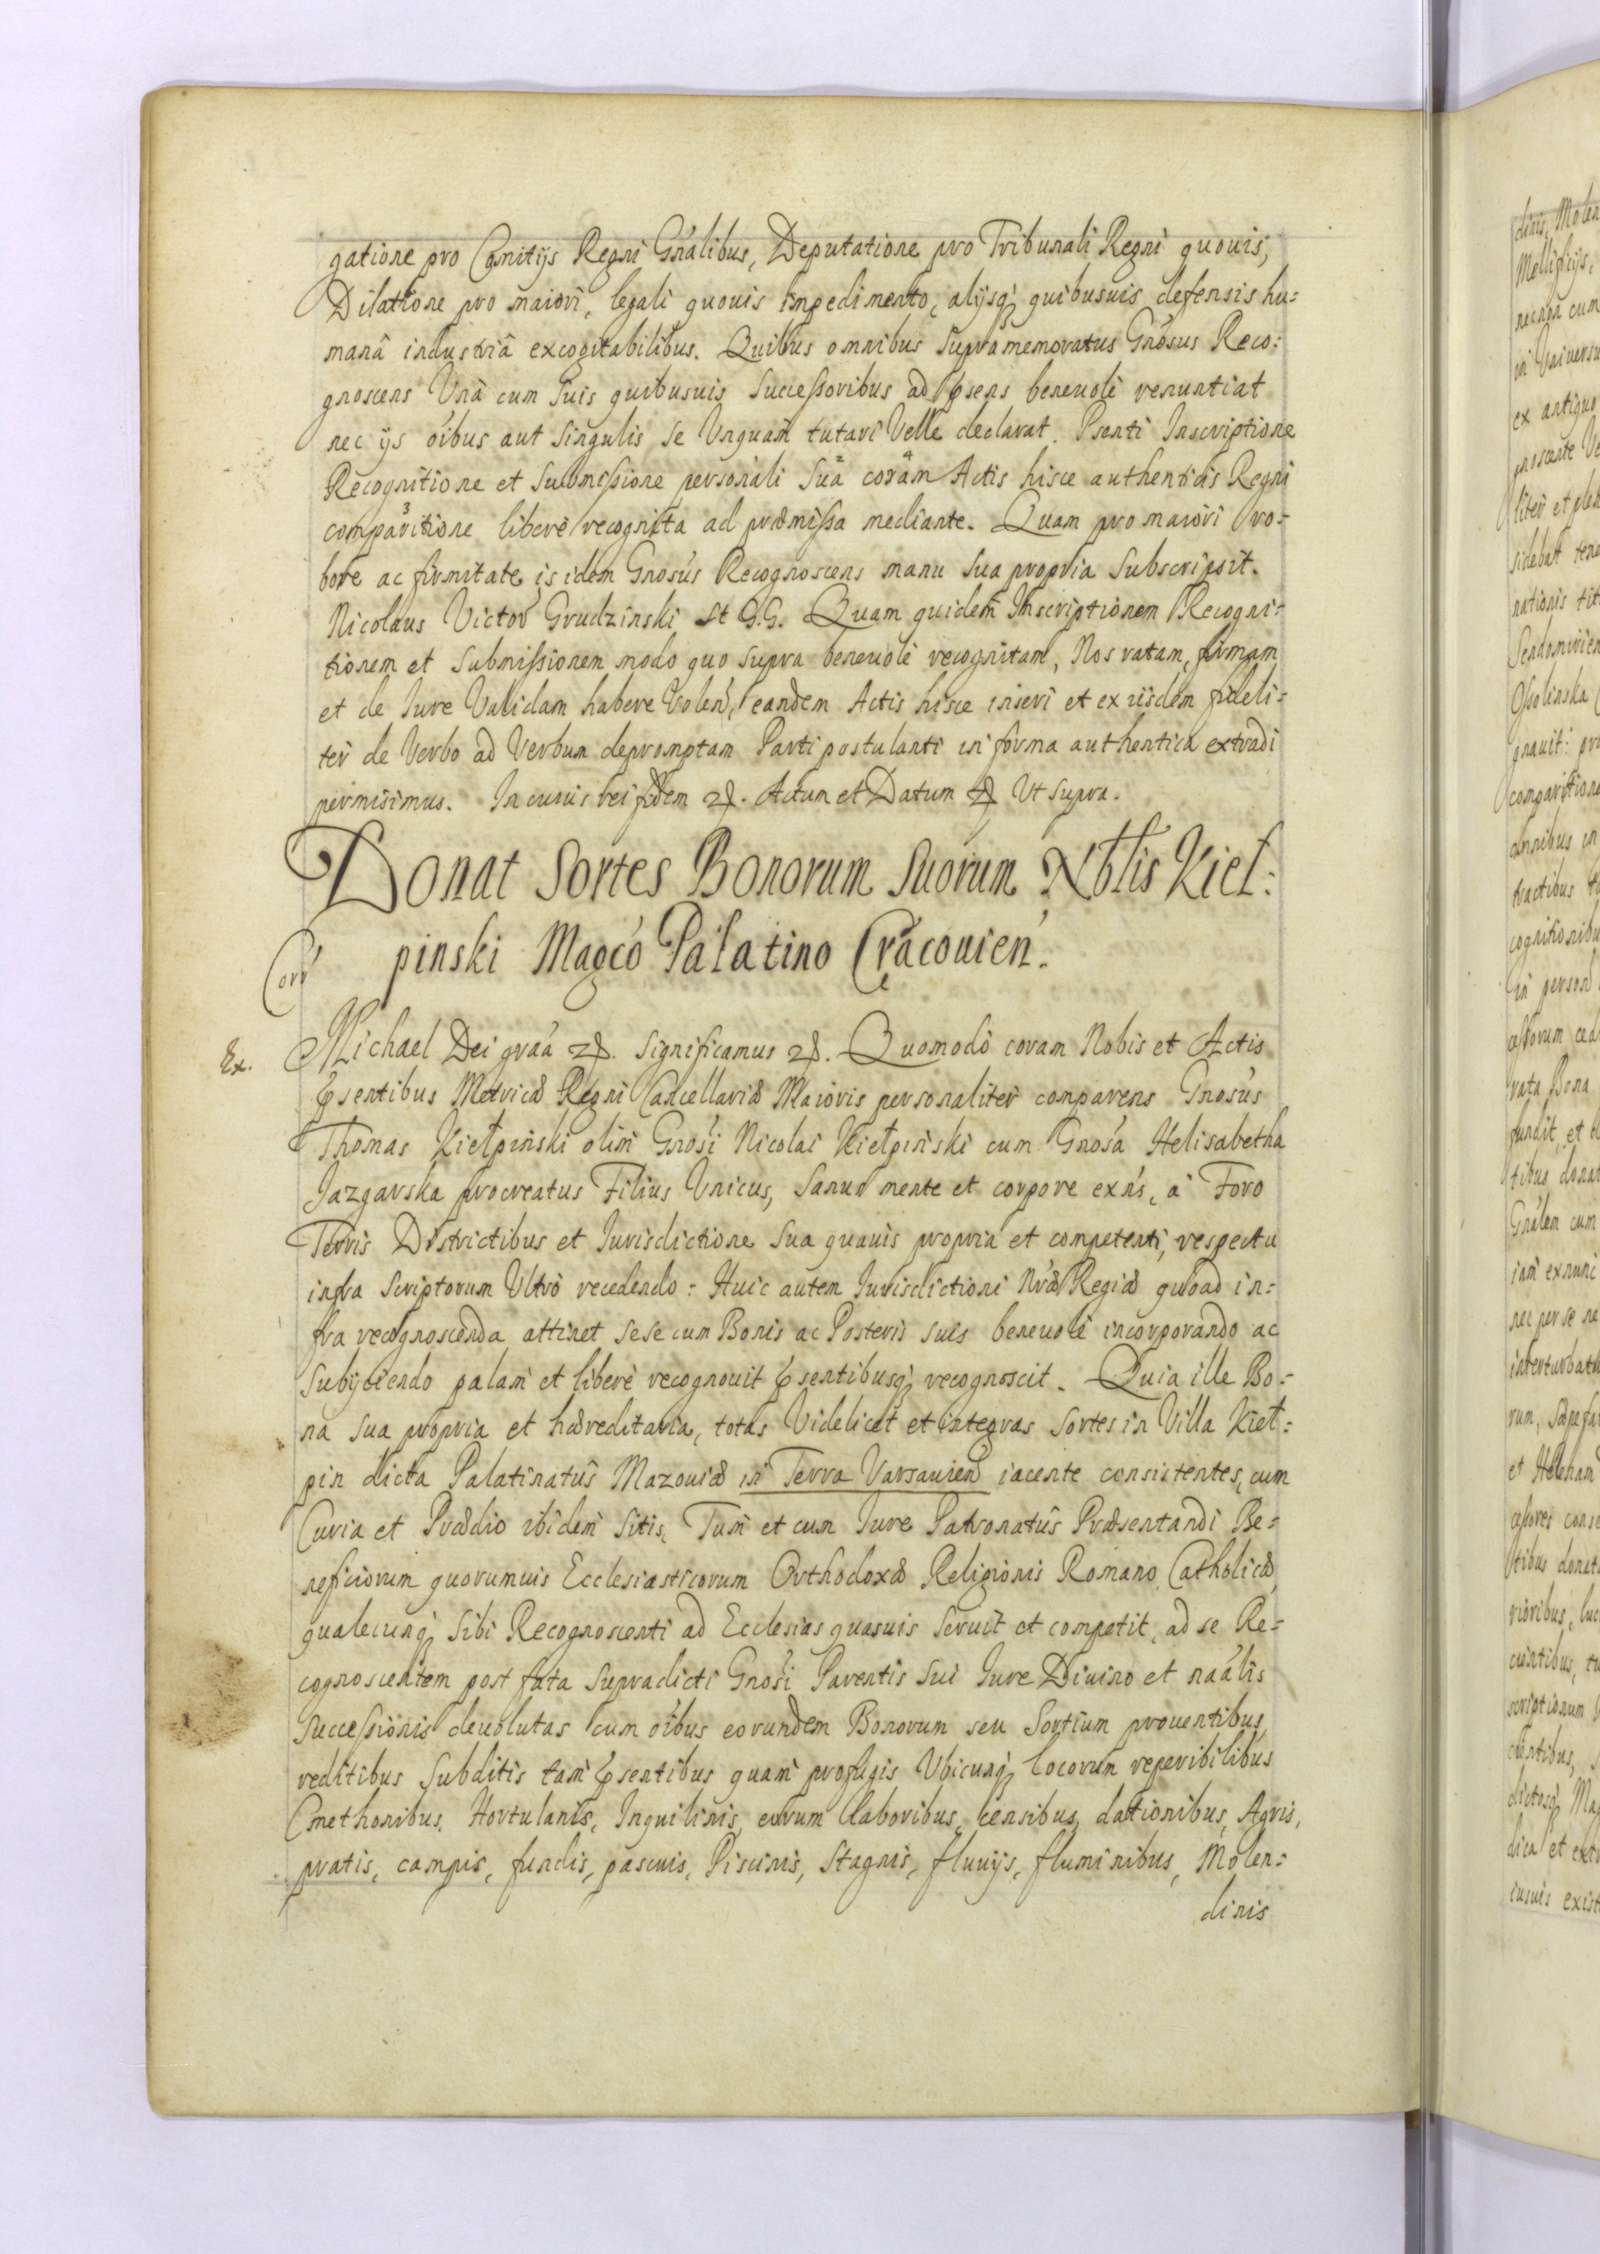 gatione pro Comitijs Regni Gńalibus, Deputatione pro Tribunali Regni quouis,
Dilatione pro maiori, legali quouis impedimento, alijsq; quibusuis defensis hu=
manâ industriâ excogitabilibus. Quibus omnibus supra memoratus Gńosus Reco=
gnoscens Vnà cum suis quibusuis Successoribus ad p̃sens beneuolè renuntiat
nec ijs óibus aut singulis se Vnquam tutari Velle declarat. Psenti Inscriptione
Recognitione et submissione personali suâ coram Actis hisce authenticis Regni
comparitione liberè recognita ad præmissa mediante. Quam pro maiori ro=
bore ac firmitate is idem Gnosus Recognoscens manu sua propria subscripsit.
Nicolaus Victor Grudzinski St G.G. Quam quidem Inscriptionem Recogni=
tionem et submissionem modo quo supra beneuolè recognitam, Nos ratam, firmam
et de Iure Validam habere Volen, eandem Actis hisce inseri et ex iisdem fideli=
ter de Verbo ad Verbum depromptam Parti postulanti in forma authentica extradi
permisimus. In cuius rei fidem &. Actum et Datum & Ut supra.
Donat Sortes Bonorum suorum Nbłis Kieł=
pinski Magcó Palatino Cracouien.
Corr
Ex.
Michael Dei graá &. Significamus &. Quomodò coram Nobis et Actis
p̃sentibus Metricæ Regni Cancellariæ Maioris personaliter comparens Gnosús
Thomas Kiełpiński olim Gnosi Nicolai Kiełpiński cum Gnosá Helisabetha
Jazgarska procreatus Filius Vnicus, Sanus mente et corpore exńs, à Foro
Terris Districtibus et Iurisdictione sua quauis propria et competenti, respectu
infra scriptorum Vltrò recedendo: Huic autem Iurisdictioni Nræ Regiæ quoad in=
fra recognoscenda attinet sese cum Bonis ac Posteris suis beneuolè incorporando ac
Subijciendo palam et liberè recognouit p̃sentibusq; recognoscit. Quia ille Bo=
na sua propria et hæreditaria, totas Videlicet et integras sortes in Villa Kieł=
pin dicta Palatinatûs Mazouiæ in Terra Varsauien iacente consistentes, cum
Curia et Prædio ibidem sitis, Tum et cum Iure Patronatûs Præsentandi Be=
neficiorum quorumuis Ecclesiasticorum Orthodoxæ Religionis Romano Catholicæ
qualecunq; sibi Recognoscenti ad Ecclesias quasuis seruit et competit, ad se Re=
cognoscentem post fata supradicti Gnosi Parentis sui Iure Diuino et naális
successionis deuolutas cum óibus eorundem Bonorum seu Sortium prouentibus
reditibus subditis tam p̃sentibus quam profugis Vbicunq; locorum reperibilibus
Cmethonibus, Hortulanis, Inquilinis, eorum laboribus, censibus, dationibus, Agris,
pratis, campis, fundis, pascuis, Piscinis, Stagnis, fluuijs, fluminibus, Molen=
dinis